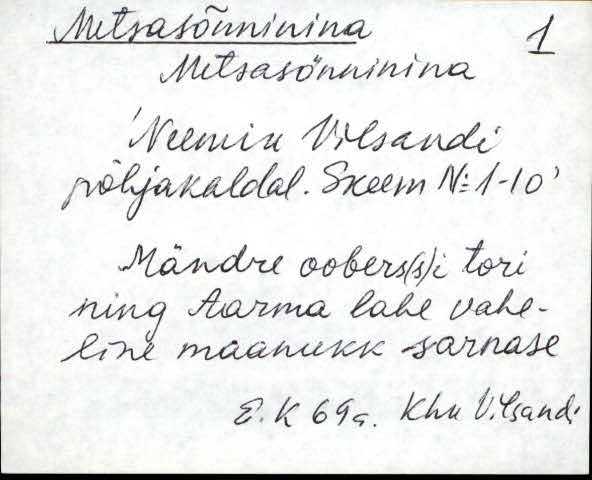 Metsasõnninina
1
Metsasönninina
'Neemik Vilsandi
põhjakaldal. Skeem №1-10'
Mändre oobers(s)i tori
ning Aarma lahe vahe-
line maanukk sarnase
E. K 69a. Khk Vilsandi